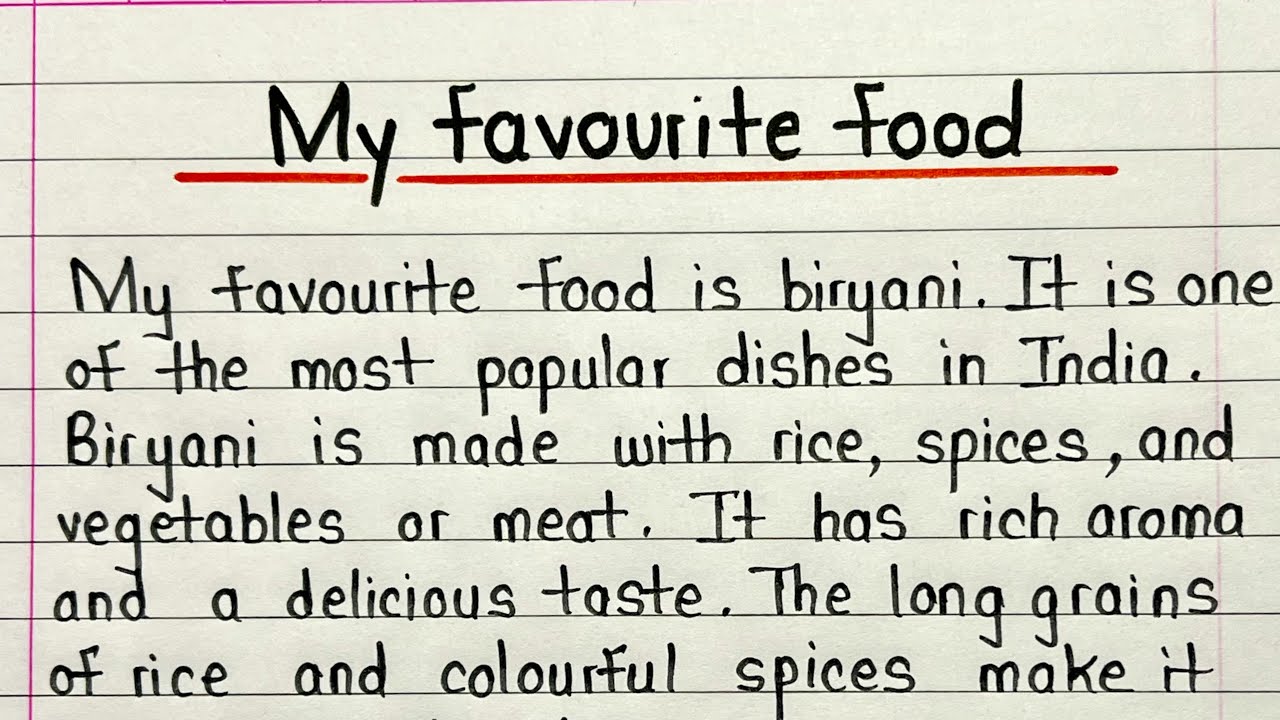 My favourite food
My favourite food is biryani. It is one
of the most popular dishes in India.
Biryani is made with rice, spices, and
vegetables or meat. It has rich aroma
and a delicious taste. The long grains
of rice and colourful spices make it